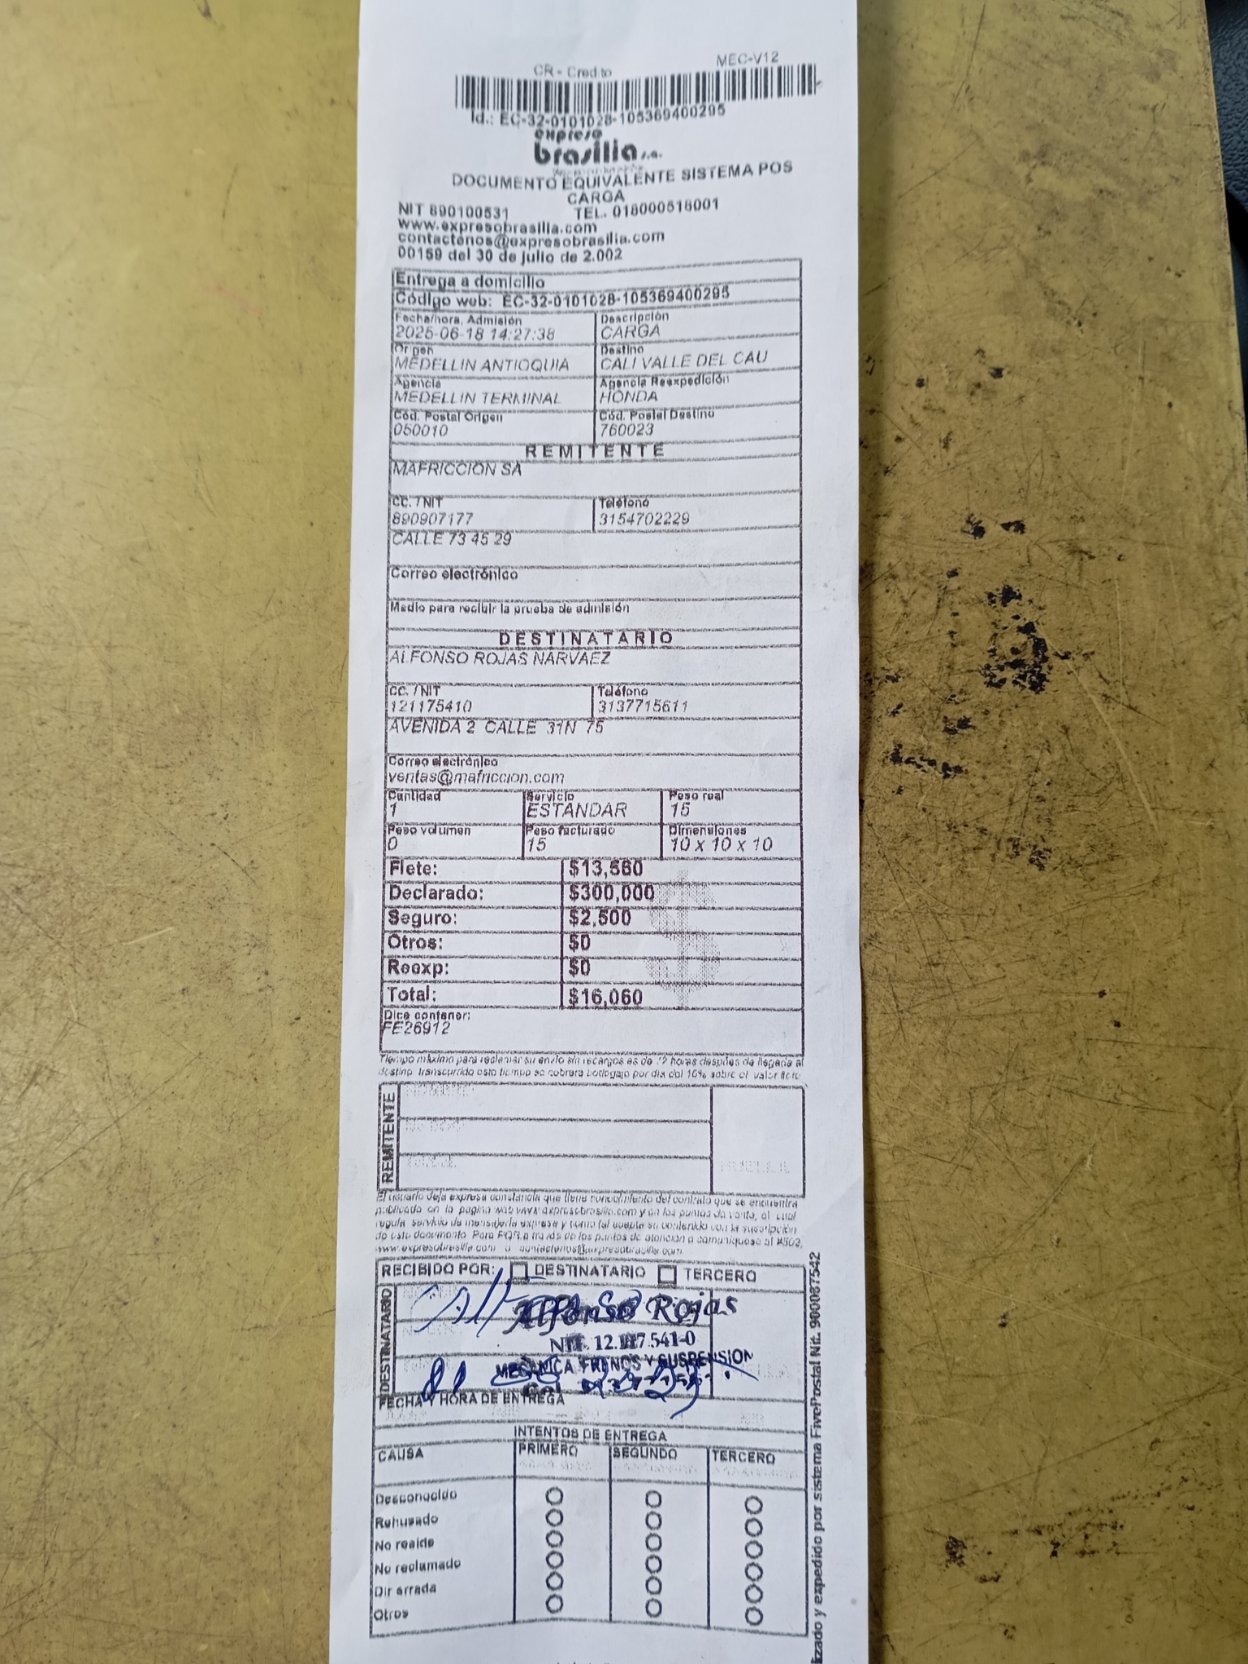 CR - Credito
MEC-V12
Id.: EC-32-0101028-105369400295
expreso
brasilia s.a.
DOCUMENTO EQUIVALENTE SISTEMA POS
CARGA
NIT 890100531 TEL. 018000518001
www.expresobrasilia.com
contactenos@expresobrasilia.com
00159 del 30 de julio de 2.002
Entrega a domicilio
Código web: EC-32-0101028-105369400295
Fecha/hora. Admisión Descripción
2025-06-18 14:27:38 CARGA
Origen Destino
MEDELLIN ANTIOQUIA CALI VALLE DEL CAU
Agencia Agencia Reexpedición
MEDELLIN TERMINAL HONDA
Cód. Postal Origen Cód. Postal Destino
050010 760023
REMITENTE
MAFRICCION SA
CC. / NIT Teléfono
890907177 3154702229
CALLE 73 45 29
Correo electrónico
Medio para recibir la prueba de admisión
DESTINATARIO
ALFONSO ROJAS NARVAEZ
CC. / NIT Teléfono
121175410 3137715611
AVENIDA 2 CALLE 31N 75
Correo electrónico
ventas@mafriccion.com
Cantidad Servicio Peso real
1 ESTANDAR 15
Peso volumen Peso facturado Dimensiones
0 15 10 x 10 x 10
Flete: $13,560
Declarado: $300,000
Seguro: $2,500
Otros: $0
Reexp: $0
Total: $16,060
Dice contener:
FE26912
Tiempo máximo para reclamar su envío sin recargos es de 72 horas después de llegada al
destino, transcurrido este tiempo se cobrará bodegaje por día del 10% sobre el valor flete
REMITENTE
HUELLA
El usuario deja expresa constancia que tiene conocimiento del contrato que se encuentra
publicado en la página web www.expresobrasilia.com y en los puntos de venta, el cual
regula servicio de mensajería expresa y como tal acepta su contenido con la suscripción
de este documento. Para PQR a través de los puntos de atención o comuníquese al #502,
www.expresobrasilia.com o contactenos@expresobrasilia.com
RECIBIDO POR: DESTINATARIO TERCERO
DESTINATARIO
Alfonso Rojas
NIT. 12.117.541-0
MECANICA FRENOS Y SUSPENSION
FECHA Y HORA DE ENTREGA
INTENTOS DE ENTREGA
CAUSA PRIMERO SEGUNDO TERCERO
Desconocido
Rehusado
No reside
No reclamado
Dir errada
Otros
izado y expedido por sistema FivePostal Nit. 900087542